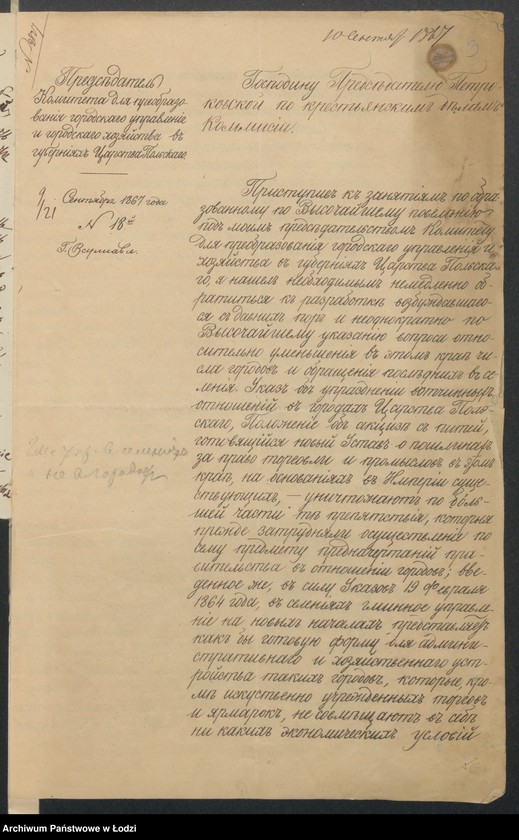 10 Сентяб 1867
3
Предсѣдатель
Комитета для преобразо-
ванія городскаго управленія
и городскаго хозяйства въ
губерніяхъ Царства Польскаго.
9/21 Сентября 1867 года
№ 18й
Г. Варшава.
Господину Предсѣдателю Петро-
ковской по крестьянскимъ дѣламъ
Коммисіи.
Приступивъ къ занятіямъ по обра-
зованному по Высочайшему повелѣнію
подъ моимъ предсѣдательствомъ Комитету
для преобразованія городскаго управленія и
хозяйства въ губерніяхъ Царства Польска-
го, я нашелъ необходимымъ немедленно об-
ратиться къ разработкѣ возбуждавшаго-
ся съ давнихъ поръ и неоднократно по
Высочайшему указанію вопроса отно-
сительно уменьшенія въ этомъ краѣ чи-
сла городовъ и обращенія послѣднихъ въ се-
ленія. Указъ объ упраздненіи вотчинныхъ
отношеній въ городахъ Царства Поль-
скаго, Положеніе объ акцизѣ съ питей,
готовящійся новый Уставъ о пошлинахъ
за право торговли и промысловъ въ здѣш.
краѣ, на основаніяхъ въ Имперіи суще-
ствующихъ, — уничтожаютъ по боль-
шей части тѣ препятствія, которыя
прежде затрудняли осуществленіе по
сему предмету предначертаній пра-
вительства въ отношеніи городовъ; вве-
денное же, въ силу Указовъ 19 Февраля
1864 года, въ селеніяхъ гминное управле-
ніе на новыхъ началахъ представляетъ
какъ бы готовую форму для админи-
стративнаго и хозяйственнаго уст-
ройства такихъ городовъ, которые, кро-
мѣ искуственно учрежденныхъ торговъ
и ярмарокъ, не совмѣщаютъ въ себѣ
ни какихъ экономическихъ условій
Archiwum Państwowe w Łodzi